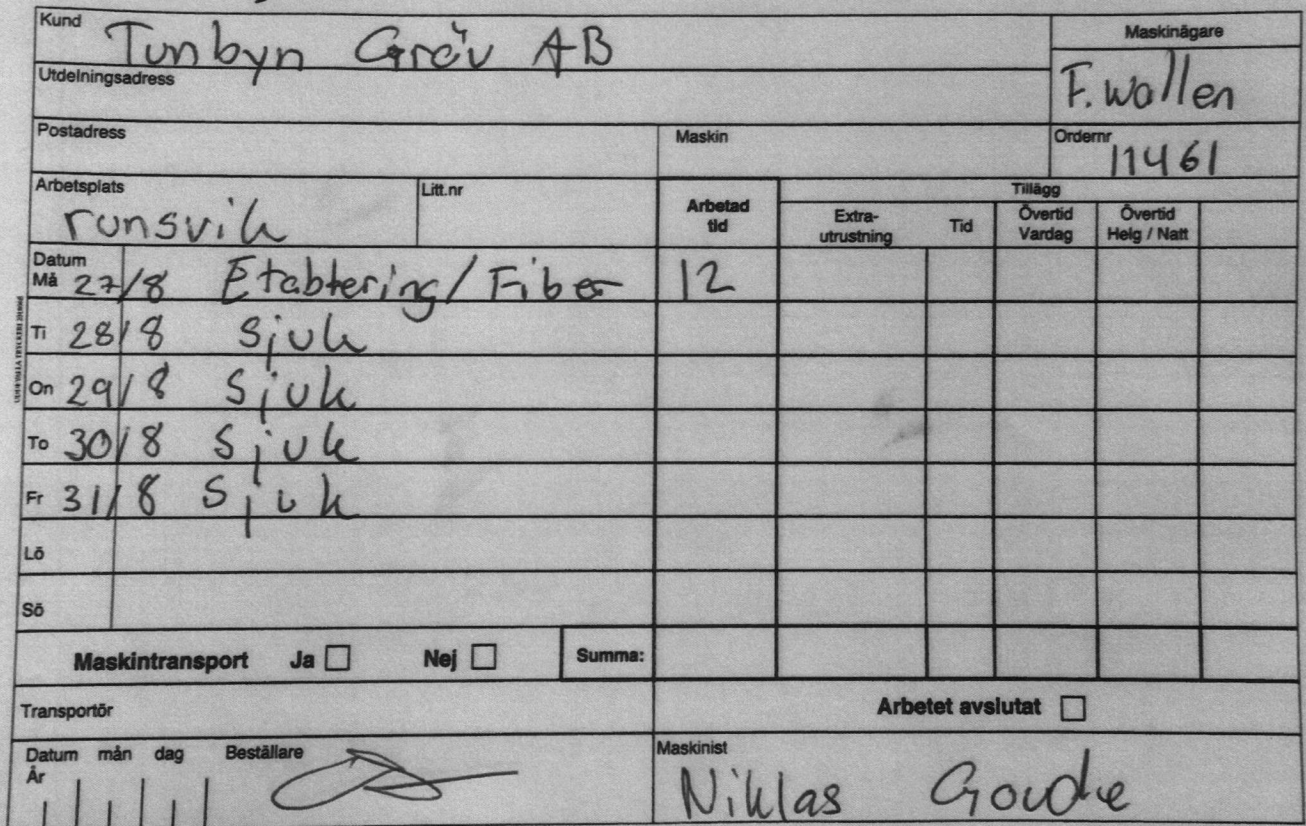 Kund Tunbyn Gräv AB
Maskinägare
Utdelningsadress
F. Wallen
Postadress Maskin Ordernr 11461
Arbetsplats runsvik Litt.nr Arbetad tid Tillägg
Extra-utrustning Tid Övertid Vardag Övertid Helg / Natt
Datum
Må 27/8 Etabtering/Fiber 12
Ti 28/8 Sjuk
On 29/8 Sjuk
To 30/8 Sjuk
Fr 31/8 Sjuk
Lö
Sö
Maskintransport Ja Nej Summa:
Transportör Arbetet avslutat
Datum mån dag Beställare Maskinist
År
Niklas